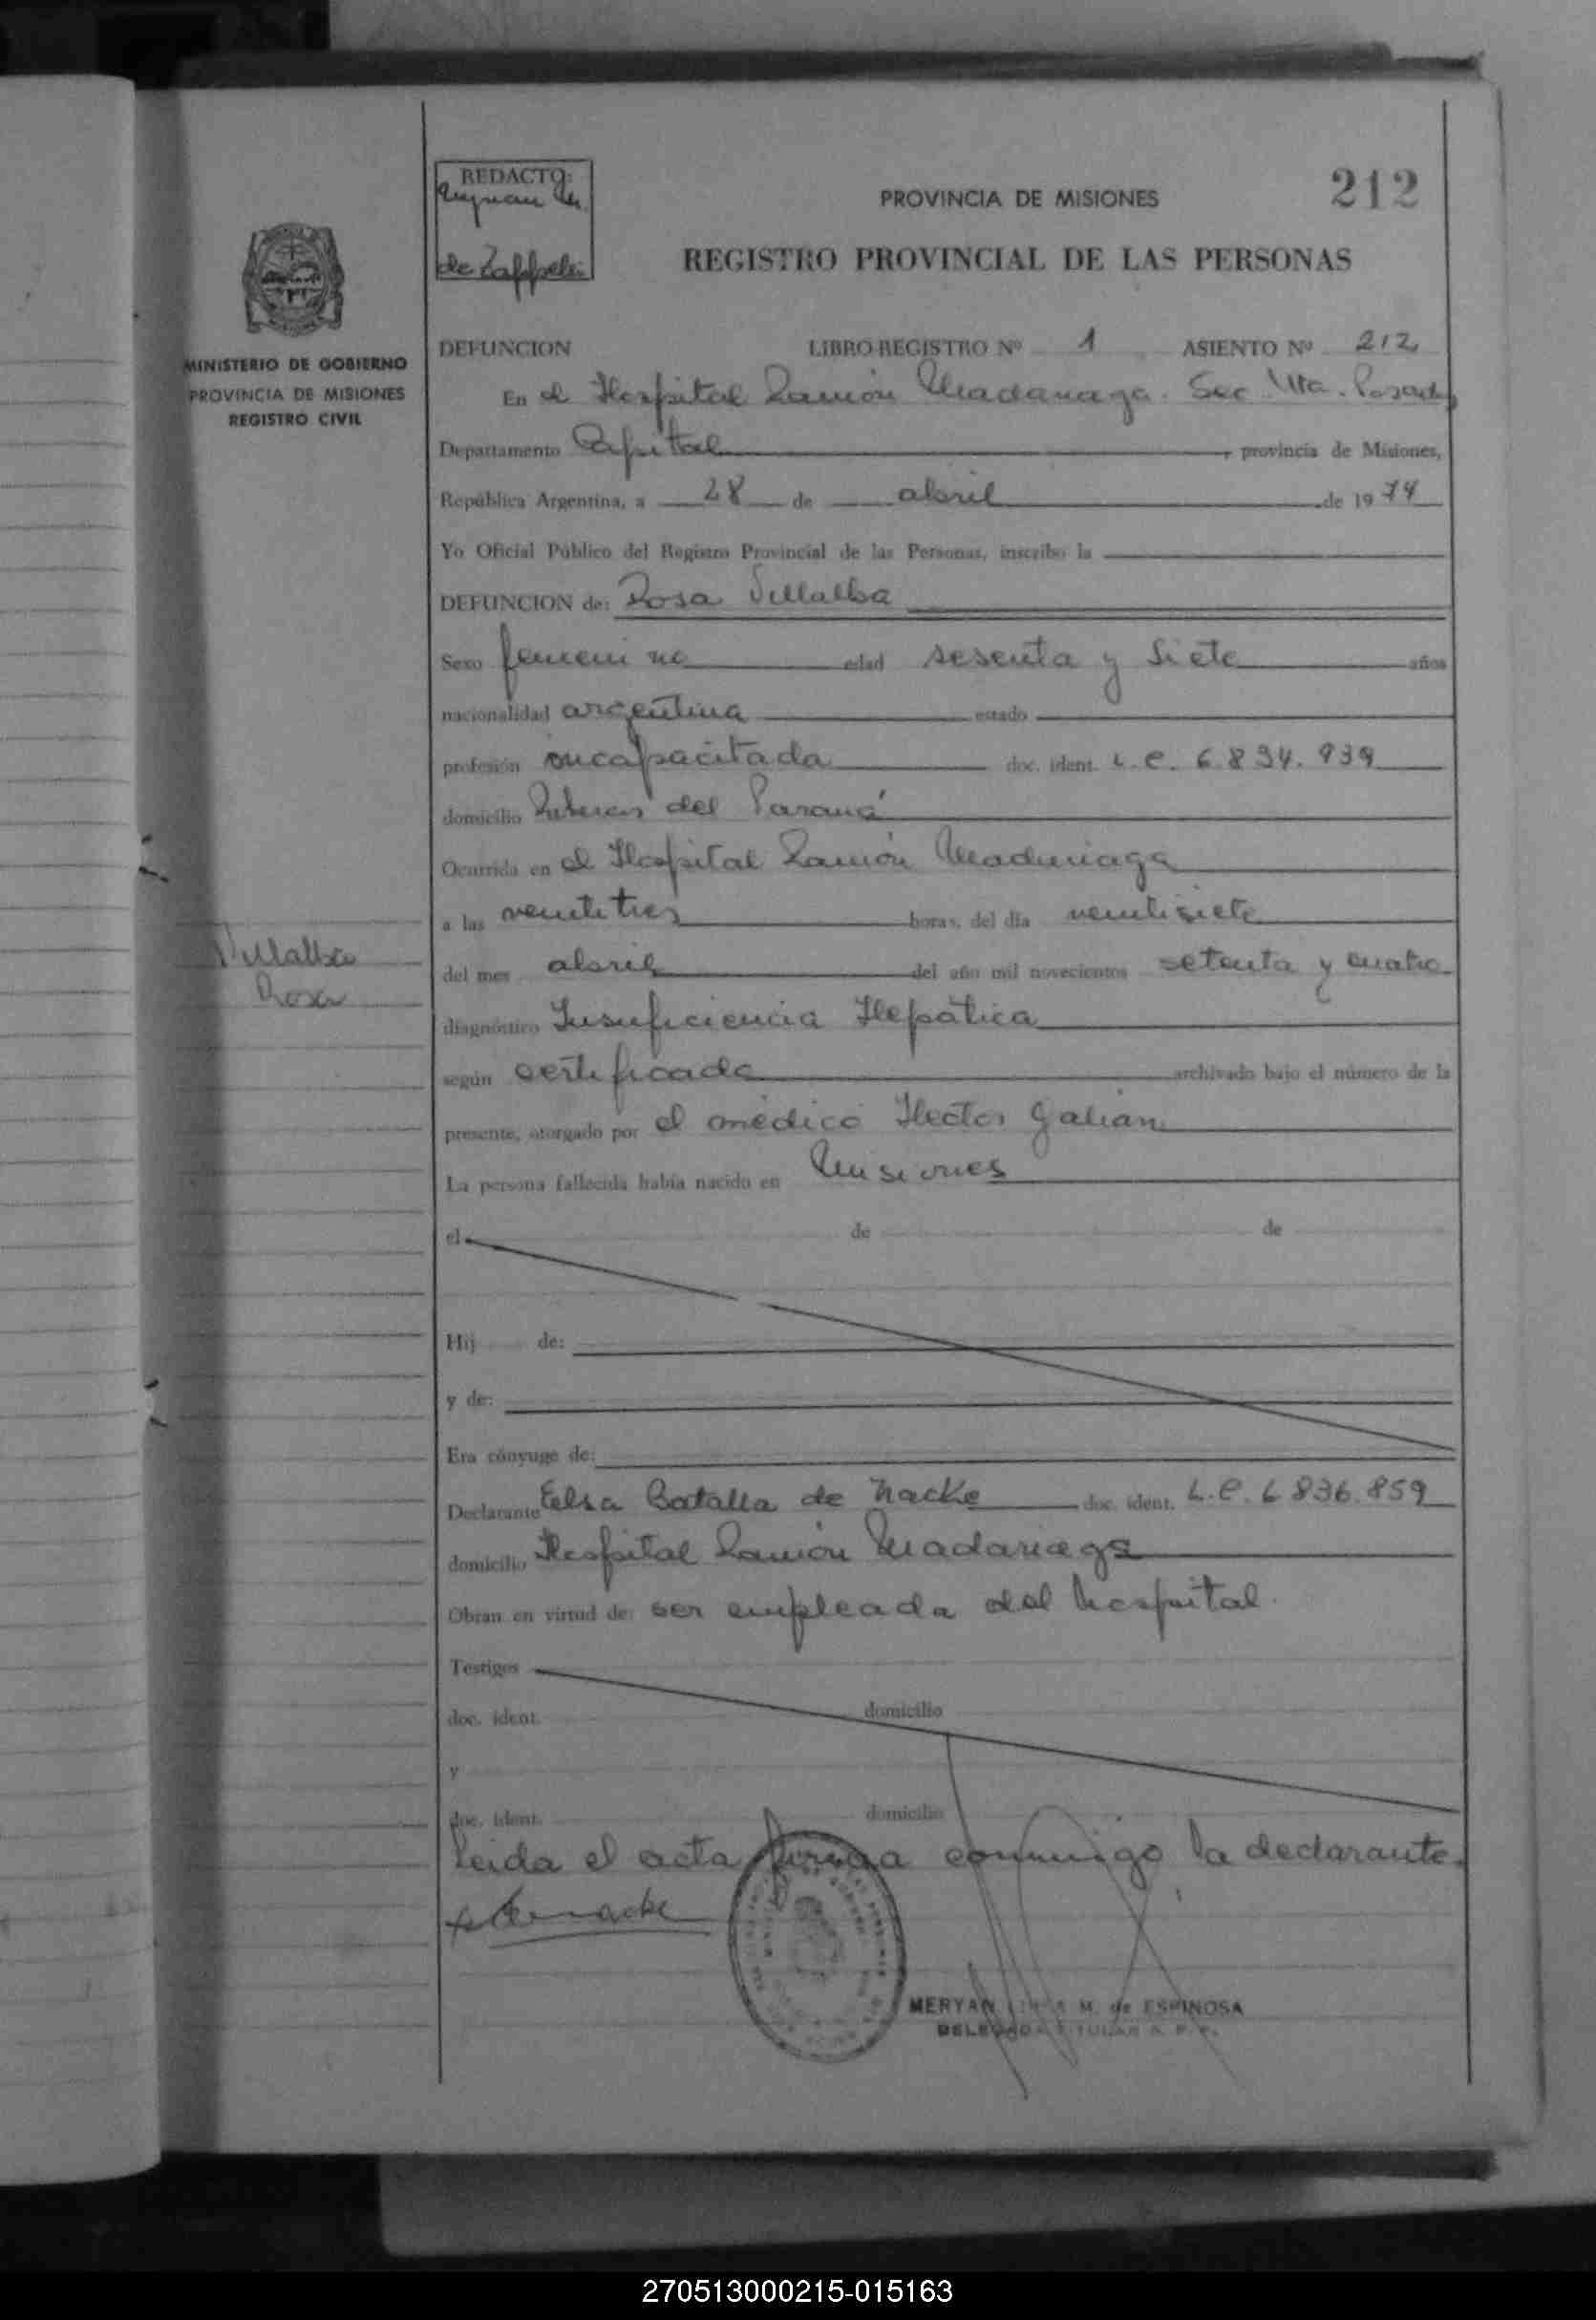 REDACTO:
de Zappelli
PROVINCIA DE MISIONES
212
REGISTRO PROVINCIAL DE LAS PERSONAS
MINISTERIO DE GOBIERNO
PROVINCIA DE MISIONES
REGISTRO CIVIL
DEFUNCION LIBRO-REGISTRO Nº 1 ASIENTO Nº 212
En el Hospital Ramón Madariaga. Sec. Posadas
Departamento Capital, provincia de Misiones,
República Argentina, a 28 de abril de 1974
Yo Oficial Público del Registro Provincial de las Personas, inscribo la
DEFUNCION de: Rosa Villalba
Sexo femenino edad sesenta y siete años
nacionalidad argentina estado
profesión incapacitada doc. ident. L.C. 6.834.939
domicilio del Paraná
Ocurrida en el Hospital Ramón Madariaga
a las veintitres horas, del día veintisiete
Villalba
Rosa
del mes abril del año mil novecientos setenta y cuatro
diagnóstico Insuficiencia Hepática
según certificado archivado bajo el número de la
presente, otorgado por el médico Hector Galian
La persona fallecida había nacido en Misiones
el de de
Hij de:
y de:
Era cónyuge de:
Declarante Elsa Batalla de Nacke doc. ident. L.C. 6836.859
domicilio Hospital Ramón Madariaga
Obran en virtud de: ser empleada del hospital.
Testigos
doc. ident. domicilio
y
doc. ident. domicilio
leida el acta firma conmigo la declarante.
MERYAN M. de ESPINOSA
DELEGADA TITULAR R. P. P.
270513000215-015163